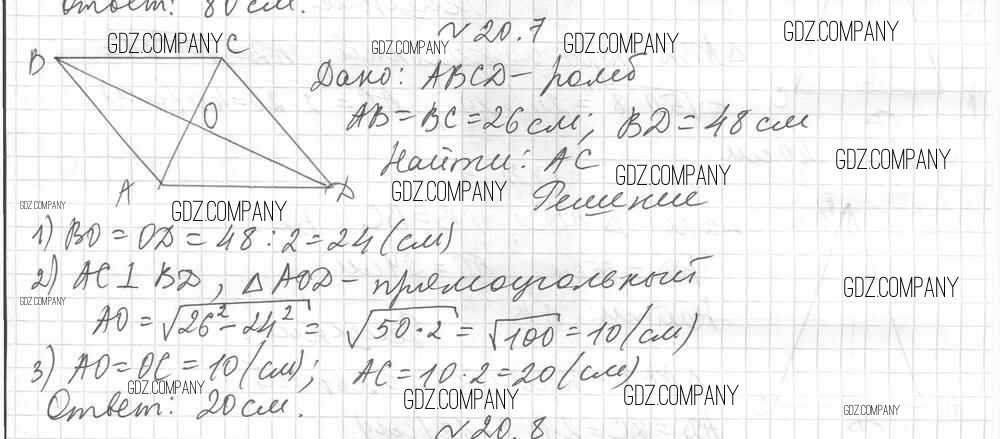 Ответ: 80 см.
№ 20.7
GDZ.COMPANY GDZ.COMPANY GDZ.COMPANY GDZ.COMPANY
B C
O
A D
Дано: ABCD – ромб
AB = BC = 26 см; BD = 48 см
Найти: AC GDZ.COMPANY
GDZ.COMPANY GDZ.COMPANY
Решение
GDZ.COMPANY GDZ.COMPANY
1) BO = OD = 48 : 2 = 24 (см)
2) AC ⊥ BD, △ AOD – прямоугольный
GDZ.COMPANY GDZ.COMPANY
AO = √26² – 24² = √50·2 = √100 = 10 (см)
3) AO = OC = 10 (см); AC = 10·2 = 20 (см)
GDZ.COMPANY GDZ.COMPANY GDZ.COMPANY
Ответ: 20 см. GDZ.COMPANY
№ 20.8